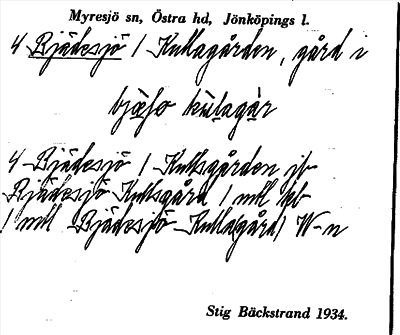 Myresjö sn, Östra hd, Jönköpings l.
4 Bjädesjö / Kullagården, gård i
4 Bjädesjö / Kullsgården jb
Bjädesjö Kullsgård / mtl kb
/ mtl Bjädesjö Kullagård / W-n
Stig Bäckstrand 1934.